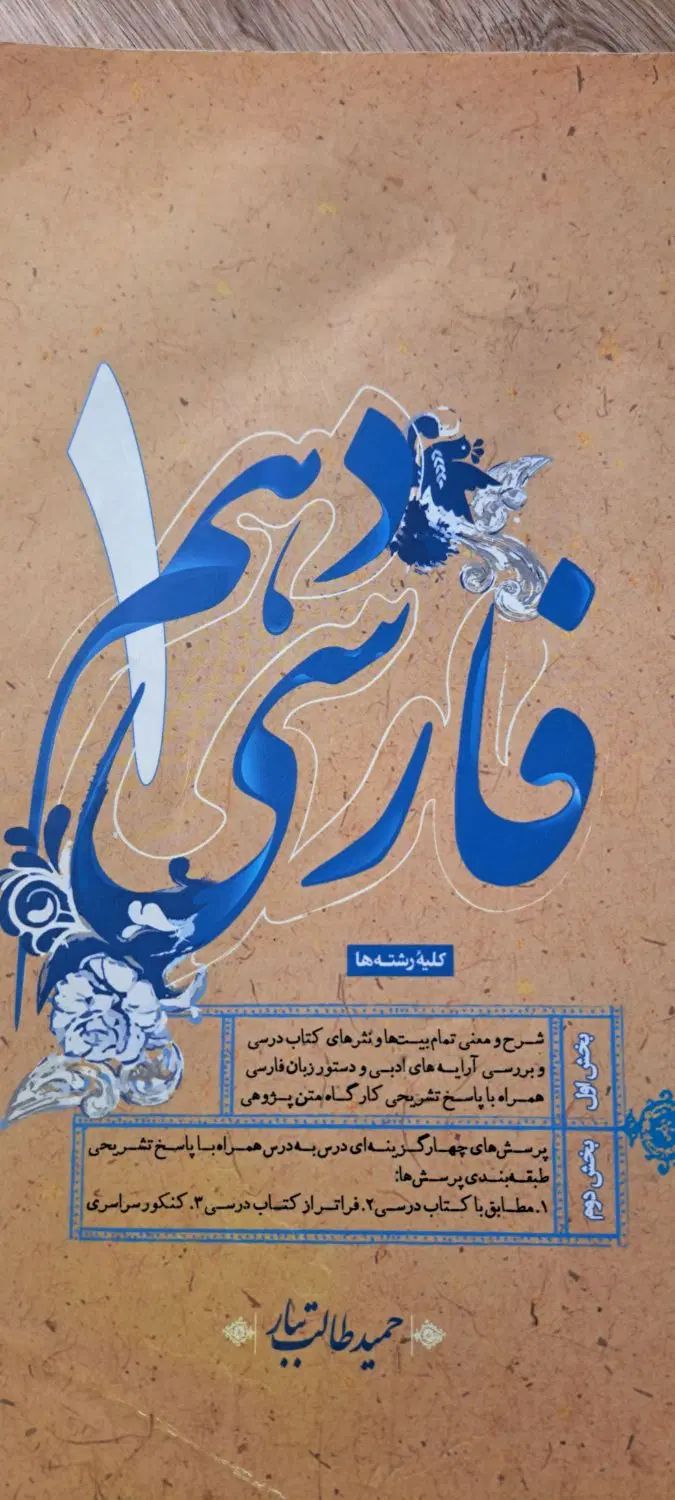 فارسی
دهم
۱
کلیهٔ رشته‌ها
بخش اول
شرح و معنی تمام بیت‌ها و نثرهای کتاب درسی
و بررسی آرایه‌های ادبی و دستور زبان فارسی
همراه با پاسخ تشریحی کارگاه متن پژوهی
بخش دوم
پرسش‌های چهارگزینه‌ای درس به درس همراه با پاسخ تشریحی
طبقه‌بندی پرسش‌ها:
۱. مطابق با کتاب درسی ۲. فراتر از کتاب درسی ۳. کنکور سراسری
حمید طالب تبار